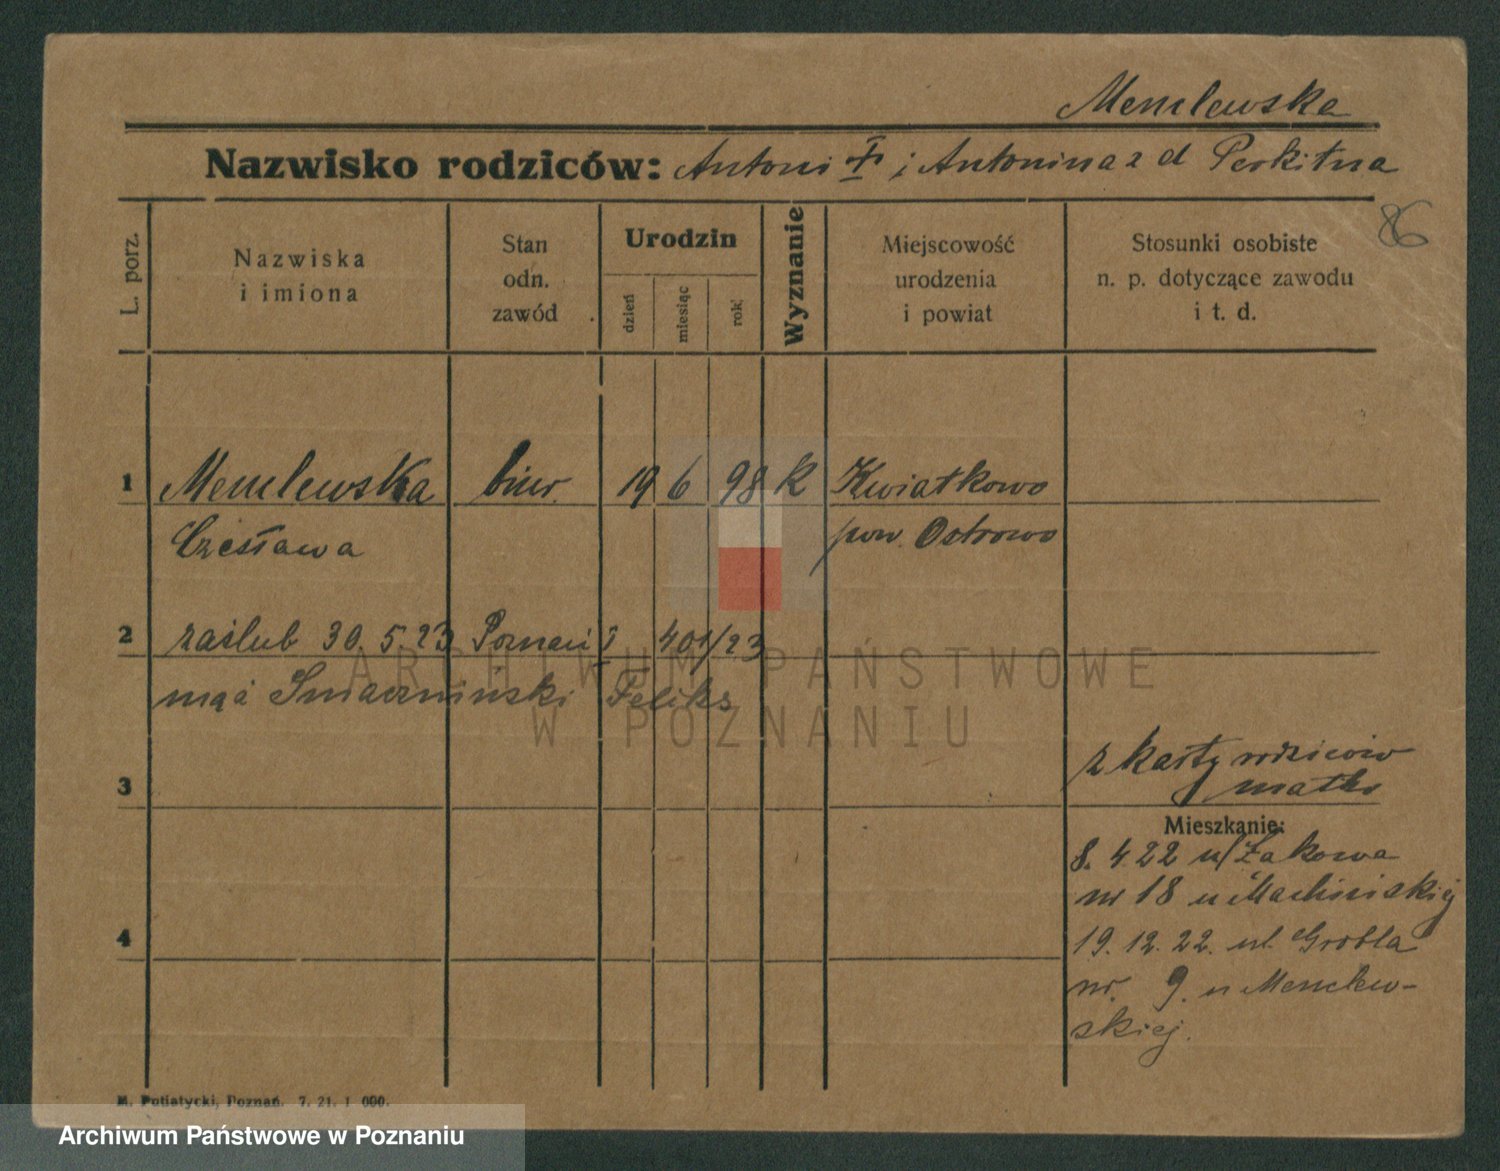 Menclewska
Nazwisko rodziców: Antoni † i Antonina z d Perkitna
86
L. porz.
Nazwiska
i imiona
Stan
odn.
zawód
Urodzin
dzień
miesiąc
rok
Wyznanie
Miejscowość
urodzenia
i powiat
Stosunki osobiste
n. p. dotyczące zawodu
i t. d.
1 Menclewska biur. 19 6 98 K Kwiatkowo
Czesława pow. Ostrowo
2 zaślub 30.5.23 Poznań I 401/23
mąż Smaczniński Feliks
z karty rodziców
matka
3
Mieszkanie:
8.4.22 ul Żakowa
nr 18 u
4
19.12.22. ul. Grobla
nr. 9. u Menclew-
skiej.
M. Putiatycki, Poznań. 7. 21. 1 000.
ARCHIWUM PAŃSTWOWE
W POZNANIU
Archiwum Państwowe w Poznaniu